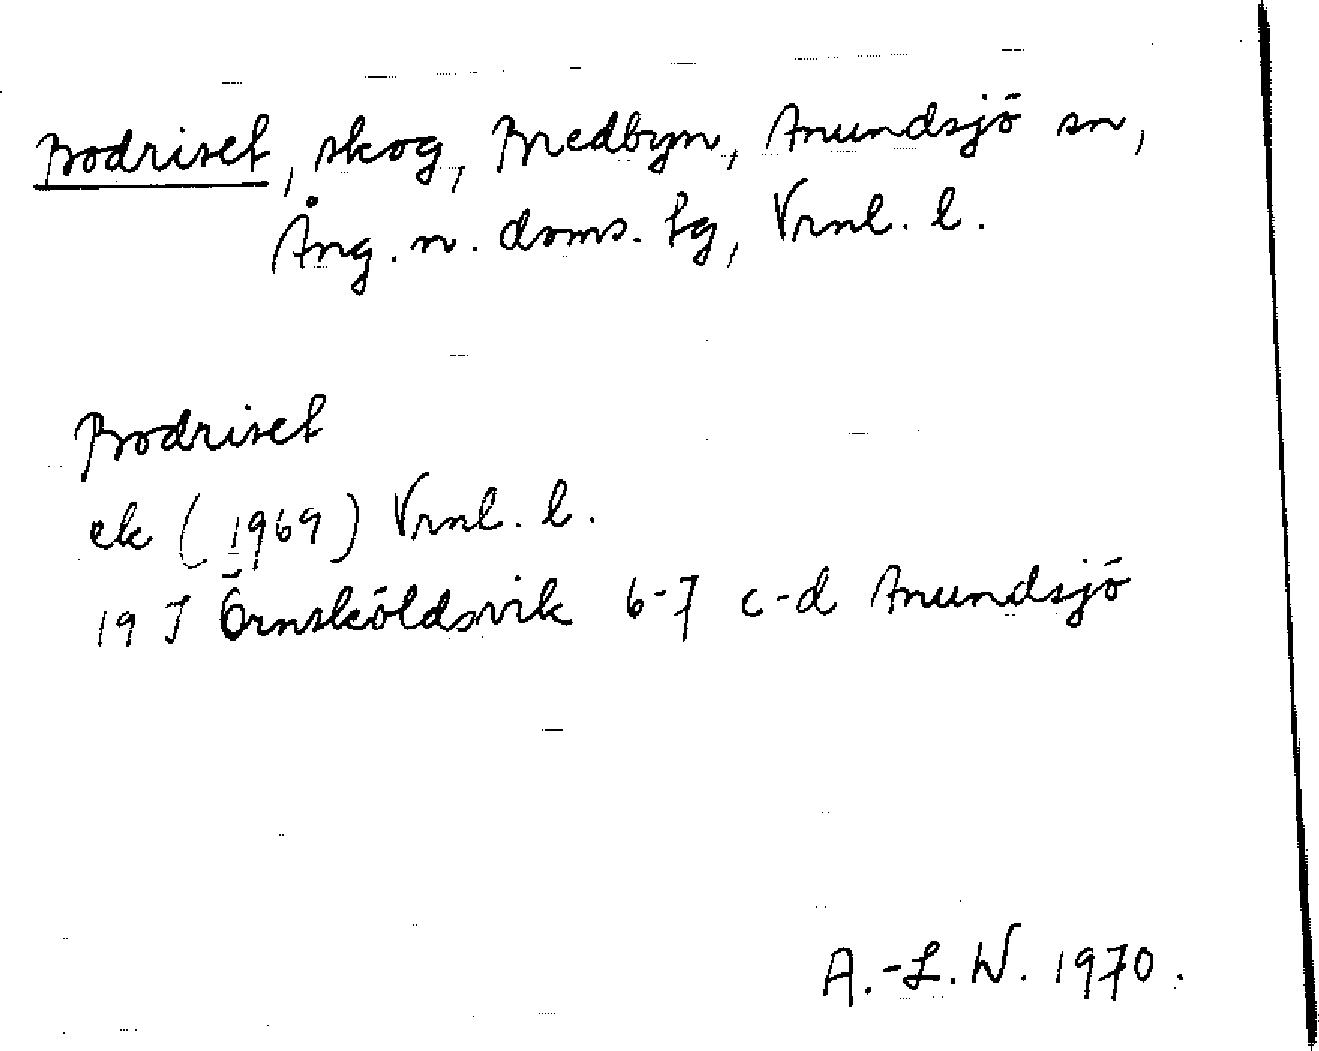 Bodriset, skog, Bredbyn, Anundsjö sn,
Ång. n. doms. tg, Vrnl. l.
Bodriset
ek (1969) Vrnl. l.
19 J Örnsköldsvik 6-7 c-d Anundsjö
A.-L. W. 1970.